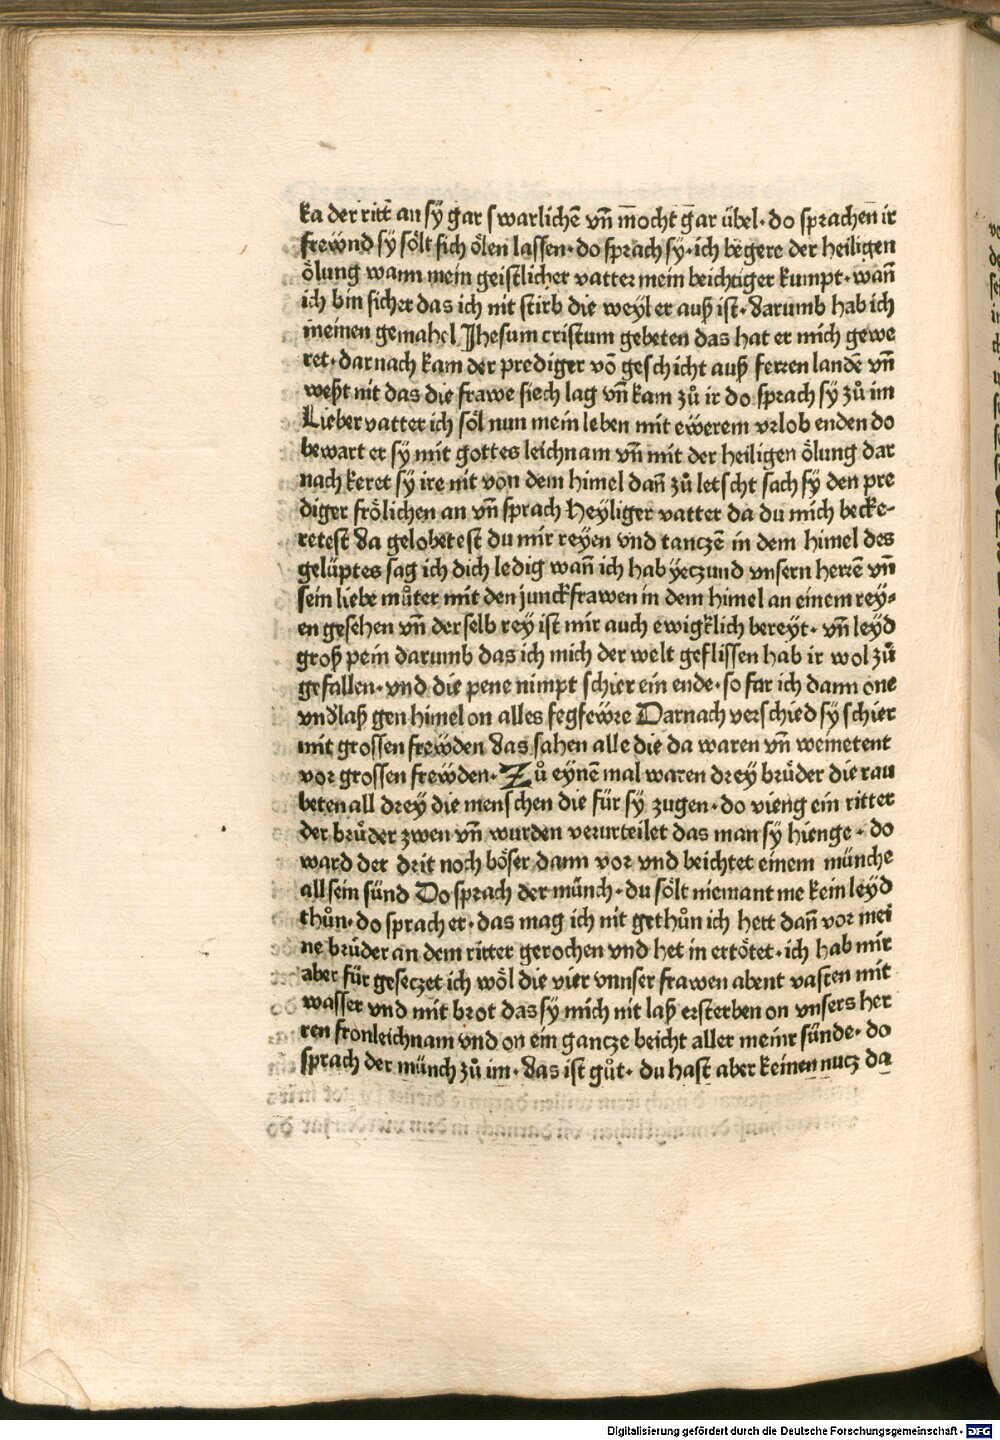 ka der ritt̄ an sÿ gar swarlichē vn̄ mocht gar übel· do sprachen ir
frewnd sÿ sölt sich ölen lassen· do sprach sÿ· ich begere der heiligen
ölung wann mein geistlicher vatter mein beichtiger kumpt· wan̄
ich bin sicher das ich nit stirb die weyl er auß ist· darumb hab ich
meinen gemahel Jhesum cristum gebeten das hat er mich gewe
ret· dar nach kam der prediger vō geschicht auß ferren landē vn̄
weßt nit das die frawe siech lag vn̄ kam zů ir do sprach sÿ zů im
Lieber vatter ich söl nun mein leben mit ewerem vrlob enden do
bewart er sÿ mit gottes leichnam vn̄ mit der heiligen ölung dar
nach keret sÿ ire nit von dem himel dan̄ zů letscht sach sÿ den pre
diger frölichen an vn̄ sprach Heÿliger vatter da du mich becke-
retest da gelobetest du mir reyen vnd tanczē in dem himel des
gelüptes sag ich dich ledig wan̄ ich hab yeczund vnsern herrē vn̄
sein liebe můter mit den junckfrawen in dem himel an einem rey-
en gesehen vn̄ der selb rey ist mir auch ewigklich bereyt· vn̄ leyd
groß pein darumb das ich mich der welt geflissen hab ir wol zů
gefallen· vnd die pene nimpt schier ein ende· so far ich dann one
vndlaß gen himel on alles fegfewre Darnach verschied sÿ schier
mit grossen frewden das sahen alle die da waren vn̄ weinetent
vor grossen frewden· Zů eynē mal waren drey brüder die rau
beten all drey die menschen die für sÿ zugen· do vieng ein ritter
der brüder zwen vn̄ wurden verurteilet das man sÿ hienge· do
ward der drit noch böser dann vor vnd beichtet einem münche
all sein sünd Do sprach der münch· du sölt niemant me kein leyd
thůn· do sprach er· das mag ich nit gethůn ich hett dan̄ vor mei
ne brüder an dem ritter gerochen vnd het in ertötet· ich hab mir
aber für geseczet ich wöl die vier vnnser frawen abent vasten mit
wasser vnd mit brot das sÿ mich nit laß ersterben on vnsers her
ren fronleichnam vnd on ein gancze beicht aller meinr sünde· do
sprach der münch zů im· das ist gůt· du hast aber keinen nucz da
Digitalisierung gefördert durch die Deutsche Forschungsgemeinschaft - DFG